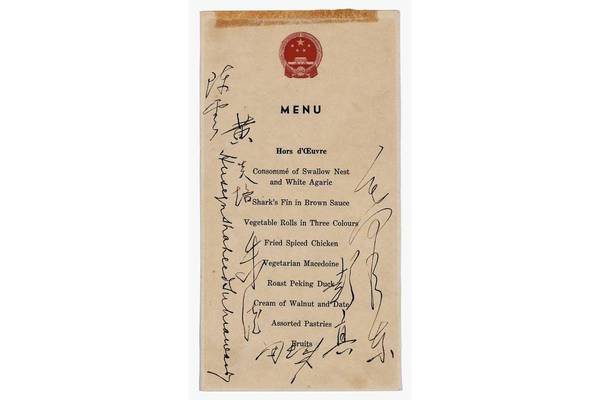 MENU
Hors d'Œuvre
Consommé of Swallow Nest
and White Agaric
Shark's Fin in Brown Sauce
Vegetable Rolls in Three Colours
Fried Spiced Chicken
Vegetarian Macedoine
Roast Peking Duck
Cream of Walnut and Date
Assorted Pastries
Fruits
黄炎培
Huseyn Shaheed Suhrawardy
朱德
毛泽东
周恩来